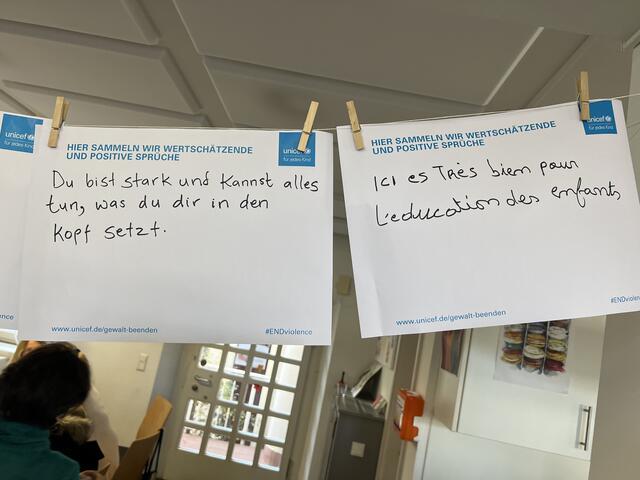 unicef
für jedes Kind
ence
HIER SAMMELN WIR WERTSCHÄTZENDE
UND POSITIVE SPRÜCHE
unicef
für jedes Kind
Du bist stark und kannst alles
tun, was du dir in den
Kopf setzt.
www.unicef.de/gewalt-beenden
#ENDviolence
HIER SAMMELN WIR WERTSCHÄTZENDE
UND POSITIVE SPRÜCHE
unicef
für jedes Kind
ICI es Très biem pour
L'education des enfants
www.unicef.de/gewalt-beenden
#ENDviolen